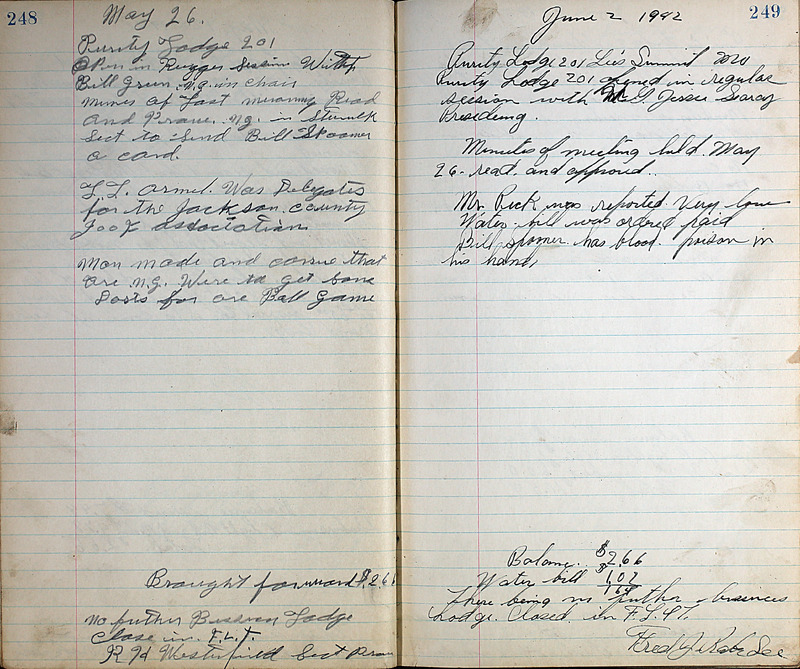 248
May 26.
Purity Lodge 201
Open in Regger Session With
Bill Green N.G. in Chair
Minnes of Last Meanny Read
And Prove. N.G. in
Sect to Send Bill Spooner
a card.
L.L. Armel. Was Delegates
for the Jackson County
IOOF association
Mon made and carrue that
are N.G. Were to get some
Posts for are Ball Game
Brought forward $2.66
no futher Bissnen Lodge
Close in F.L.T.
R H Westerfield Sect
249
June 2 1942
Purity Lodge 201 Lee's Summit
Purity Lodge 201 opened in regular
session with Jessie Searcy
Presideing.
Minutes of meeting held May
26 read and approved.
Mr. Peek was reported very low
Water bill was ordered paid
Bill Spooner has blood poison in
his hand,
Balance $2.66
Water bill $1.02
1.64
There being no futher business
Lodge Closed in F.L.&T.
Fred Sec